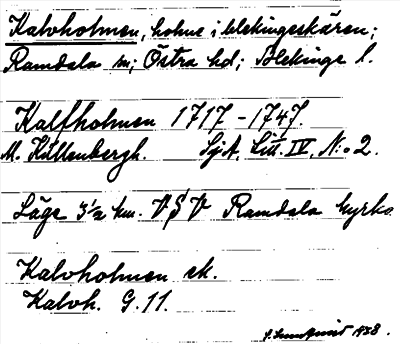 Kalvholmen, holme i blekingeskären;
Ramdala sn; Östra hd; Blekinge l.
Kalfholmen 1717 - 1747.
M. Küllenbergh. Sjöt. Litt. IV. N:o 2.
Läge 3 1/2 km. VSV Ramdala kyrka
Kalvholmen ek.
Kalvh. G. 11.
1938.